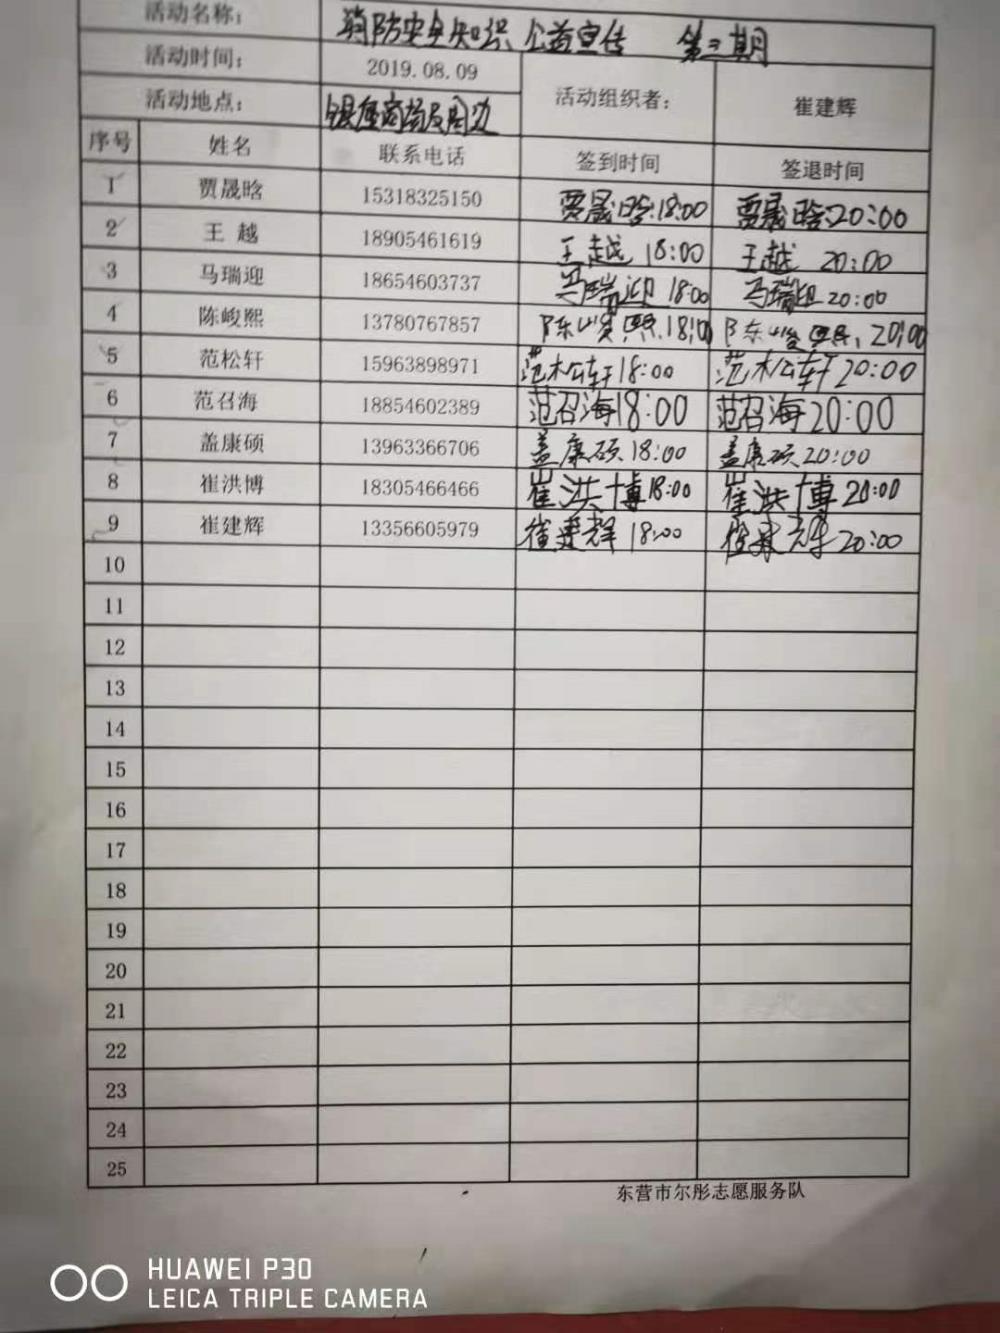 活动名称： 消防安全知识 公益宣传 第三期
活动时间： 2019.08.09 活动组织者： 崔建辉
活动地点： 银座商场及周边
序号 姓名 联系电话 签到时间 签退时间
1 贾晟晗 15318325150 贾晟晗.18:00 贾晟晗.20:00
2 王 越 18905461619 王越 18:00 王越 20:00
3 马瑞迎 18654603737 马瑞迎 18:00 马瑞迎 20:00
4 陈峻熙 13780767857 陈峻熙.18:00 陈峻熙.20:00
5 范松轩 15963898971 范松轩 18:00 范松轩 20:00
6 范召海 18854602389 范召海 18:00 范召海 20:00
7 盖康硕 13963366706 盖康硕 18:00 盖康硕 20:00
8 崔洪博 18305466466 崔洪博 18:00 崔洪博 20:00
9 崔建辉 13356605979 崔建辉 18:00 崔建辉 20:00
10
11
12
13
14
15
16
17
18
19
20
21
22
23
24
25
东营市尔彤志愿服务队
HUAWEI P30
LEICA TRIPLE CAMERA